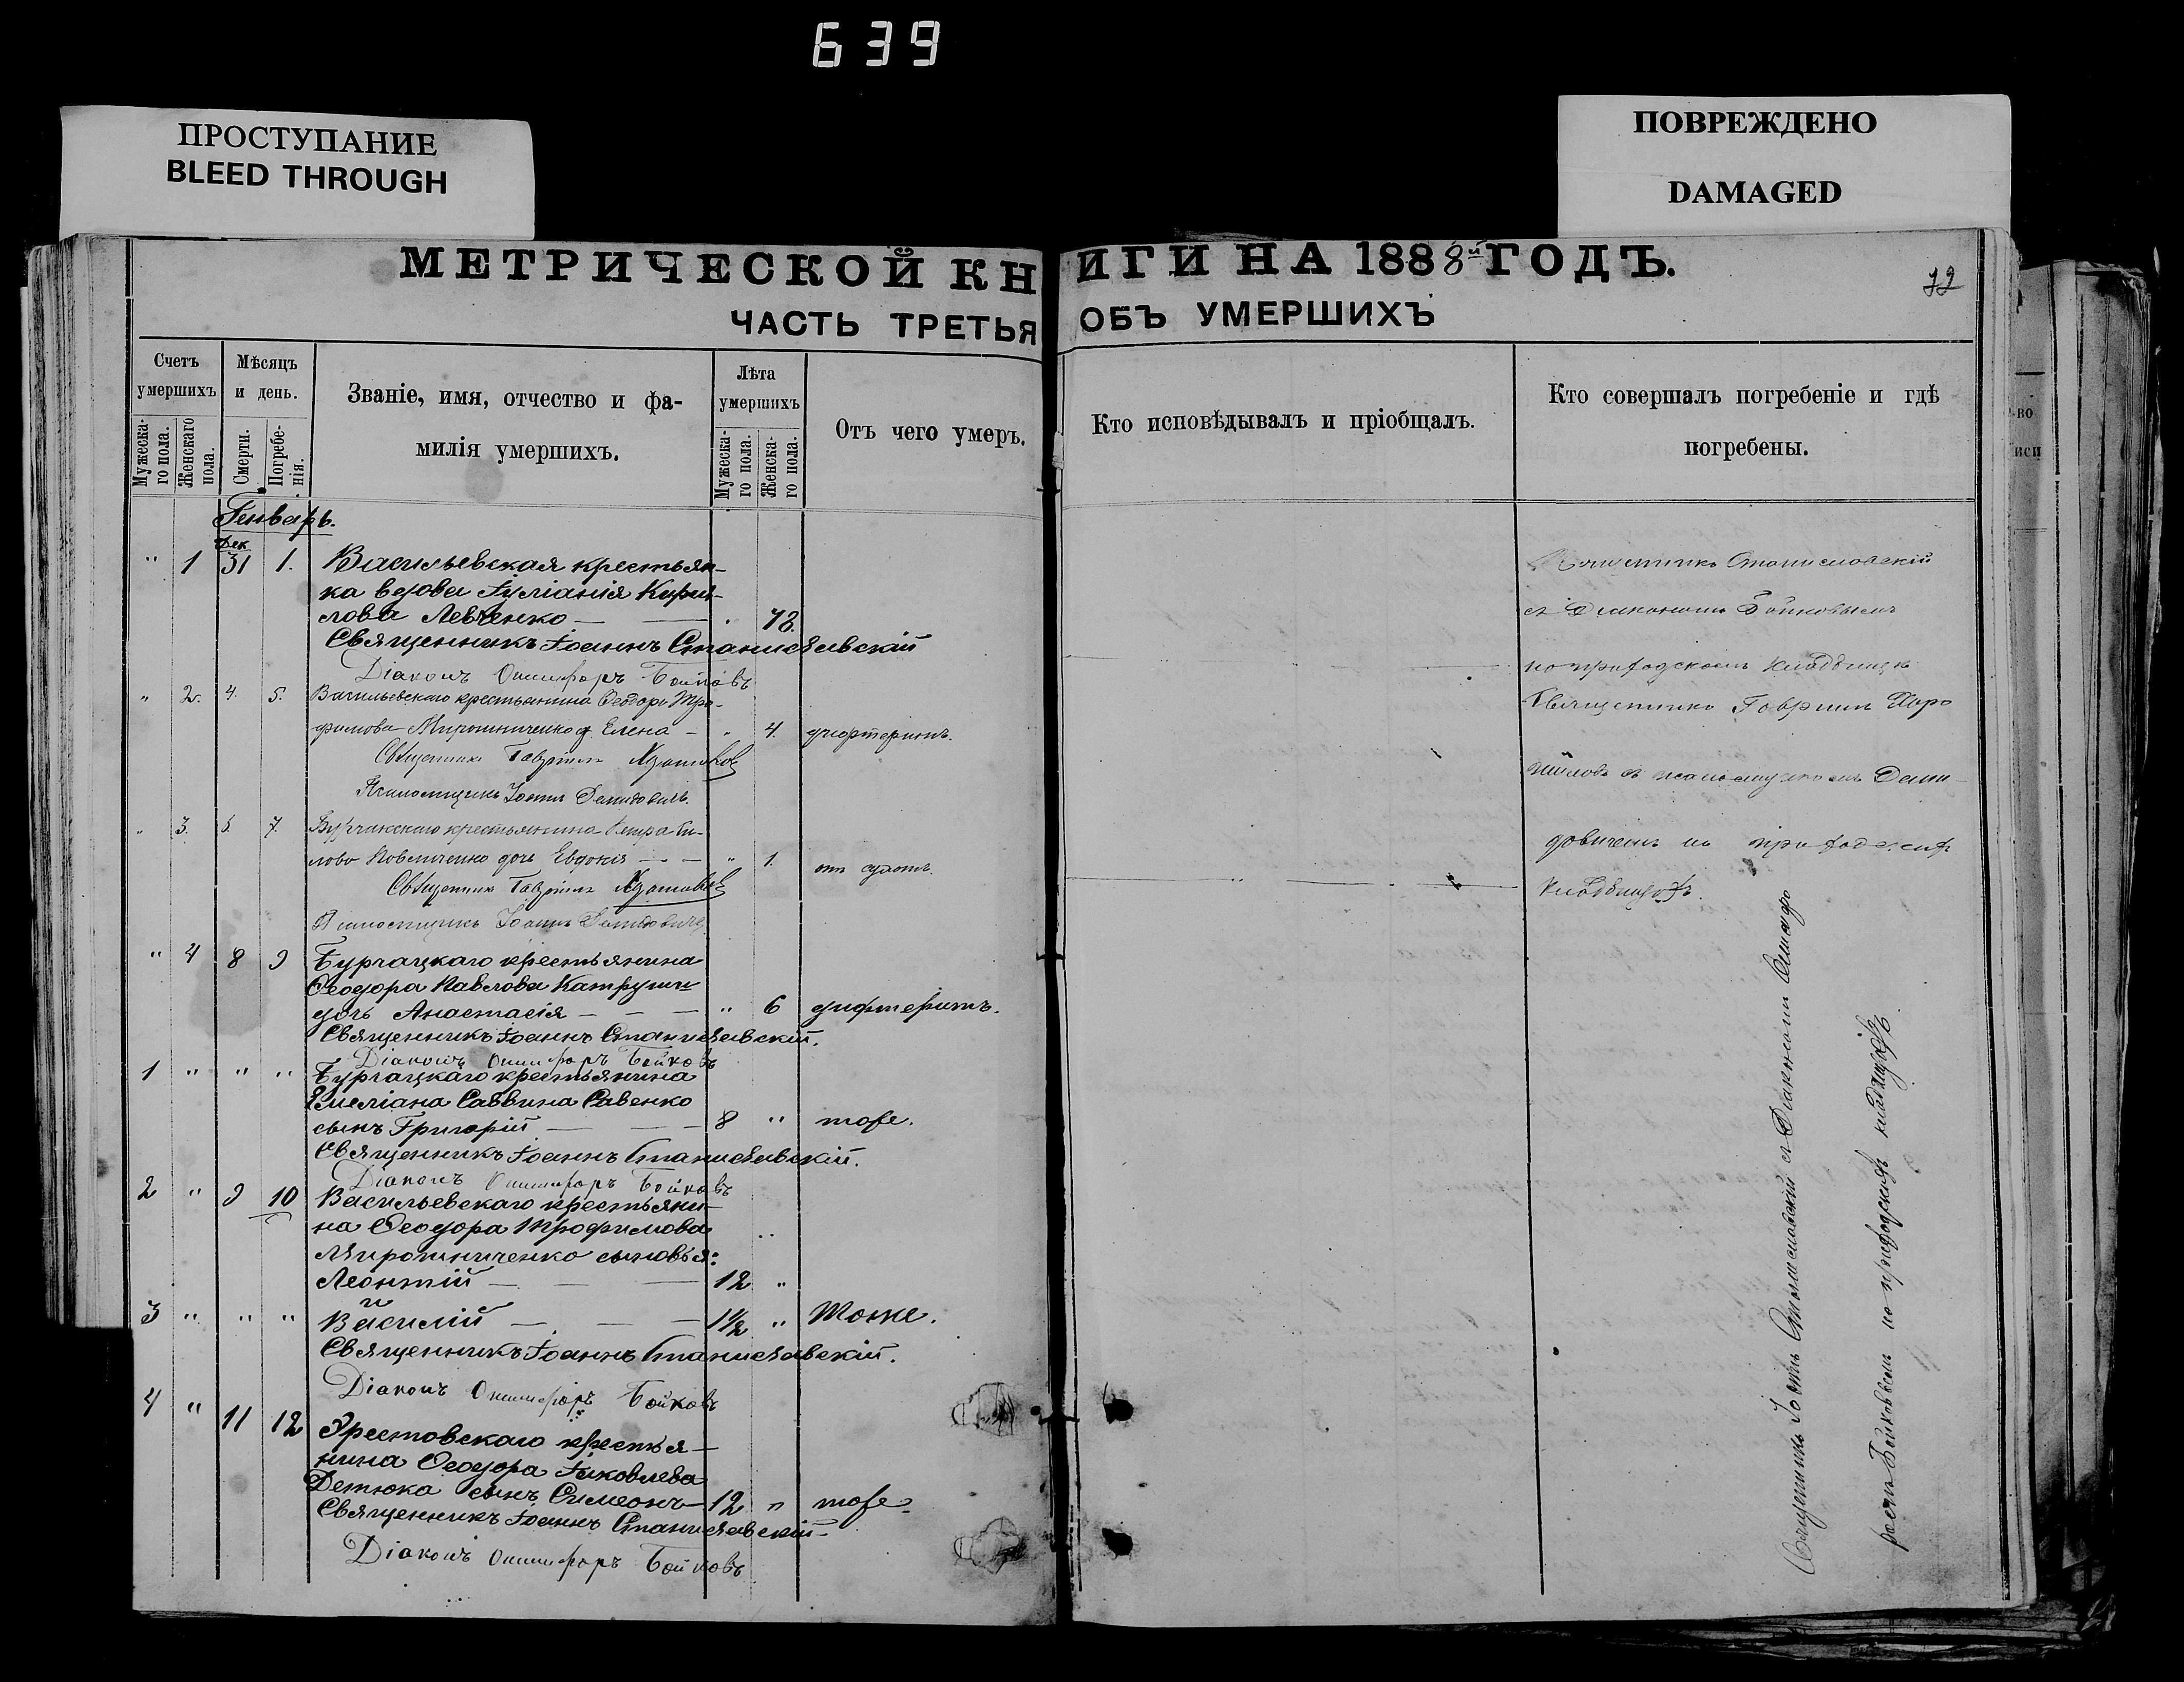 639
ПРОСТУПАНИЕ
BLEED THROUGH
ПОВРЕЖДЕНО
DAMAGED
МЕТРИЧЕСКОЙ КНИГИ НА 1888й ГОДЪ.
ЧАСТЬ ТРЕТЬЯ ОБЪ УМЕРШИХЪ
Счетъ умершихъ
Мужеска-го пола.
Женскаго пола.
Мѣсяцъ и день.
Смерти.
Погребе-нія.
Званіе, имя, отчество и фа-
милія умершихъ.
Лѣта умершихъ
Мужеска-го пола.
Женска-го пола.
Отъ чего умеръ.
Кто исповѣдывалъ и пріобщалъ.
Кто совершалъ погребеніе и гдѣ
погребены.
Генварь.
Дек
" 1 31 1. Васильевская крестьян-
ка вдова Іуліанія Кирил-
лова Левченко — 78.
Священникъ Іоаннъ Станиславскій
Діаконъ Онисифоръ Бойковъ
" 2. 4. 5. Васильевскаго крестьянина Ѳеодора Тро-
фимова Мирошниченко д. Елена — " 4. дифтеритъ.
Священникъ Гавріилъ
Псаломщикъ Іоаннъ Демидовичъ.
" 3. 5. 7. крестьянина Петра
дочь Евдокія — " 1. отъ
Священникъ Гавріилъ
Псаломщикъ Іоаннъ Демидовичъ
" 4 8 9 Бурчацкаго крестьянина
Ѳеодора Павлова
дочь Анастасія — " 6 дифтеритъ.
Священникъ Іоаннъ Станиславскій.
Діаконъ Онисифоръ Бойковъ
1 " " " Бурчацкаго крестьянина
Емеліана Саввина Савенко
сынъ Григорій — 8 " тоже.
Священникъ Іоаннъ Станиславскій.
Діаконъ Онисифоръ Бойковъ
2 " 9 10 Васильевскаго крестьяни-
на Ѳеодора Трофимова
Мирошниченко сыновья:
Леонтій — 12 "
3 " " " и
Василій — 1½ " Тоже.
Священникъ Іоаннъ Станиславскій.
Діаконъ Онисифоръ Бойковъ
4 " 11 12 крестья-
нина Ѳеодора Іаковлева
Детюка сынъ Симеонъ — 12 " тоже
Священникъ Іоаннъ Станиславскій
Діаконъ Онисифоръ Бойковъ
Священникъ Станиславскій
съ Діакономъ Бойковымъ
на приходскомъ кладбищѣ
Священникъ Гавріилъ
съ псаломщикомъ Деми-
довичемъ на приходскихъ
кладбищахъ.
Священникъ Іоаннъ Станиславскій съ Діакономъ
Бойковымъ на приходскихъ кладбищахъ.